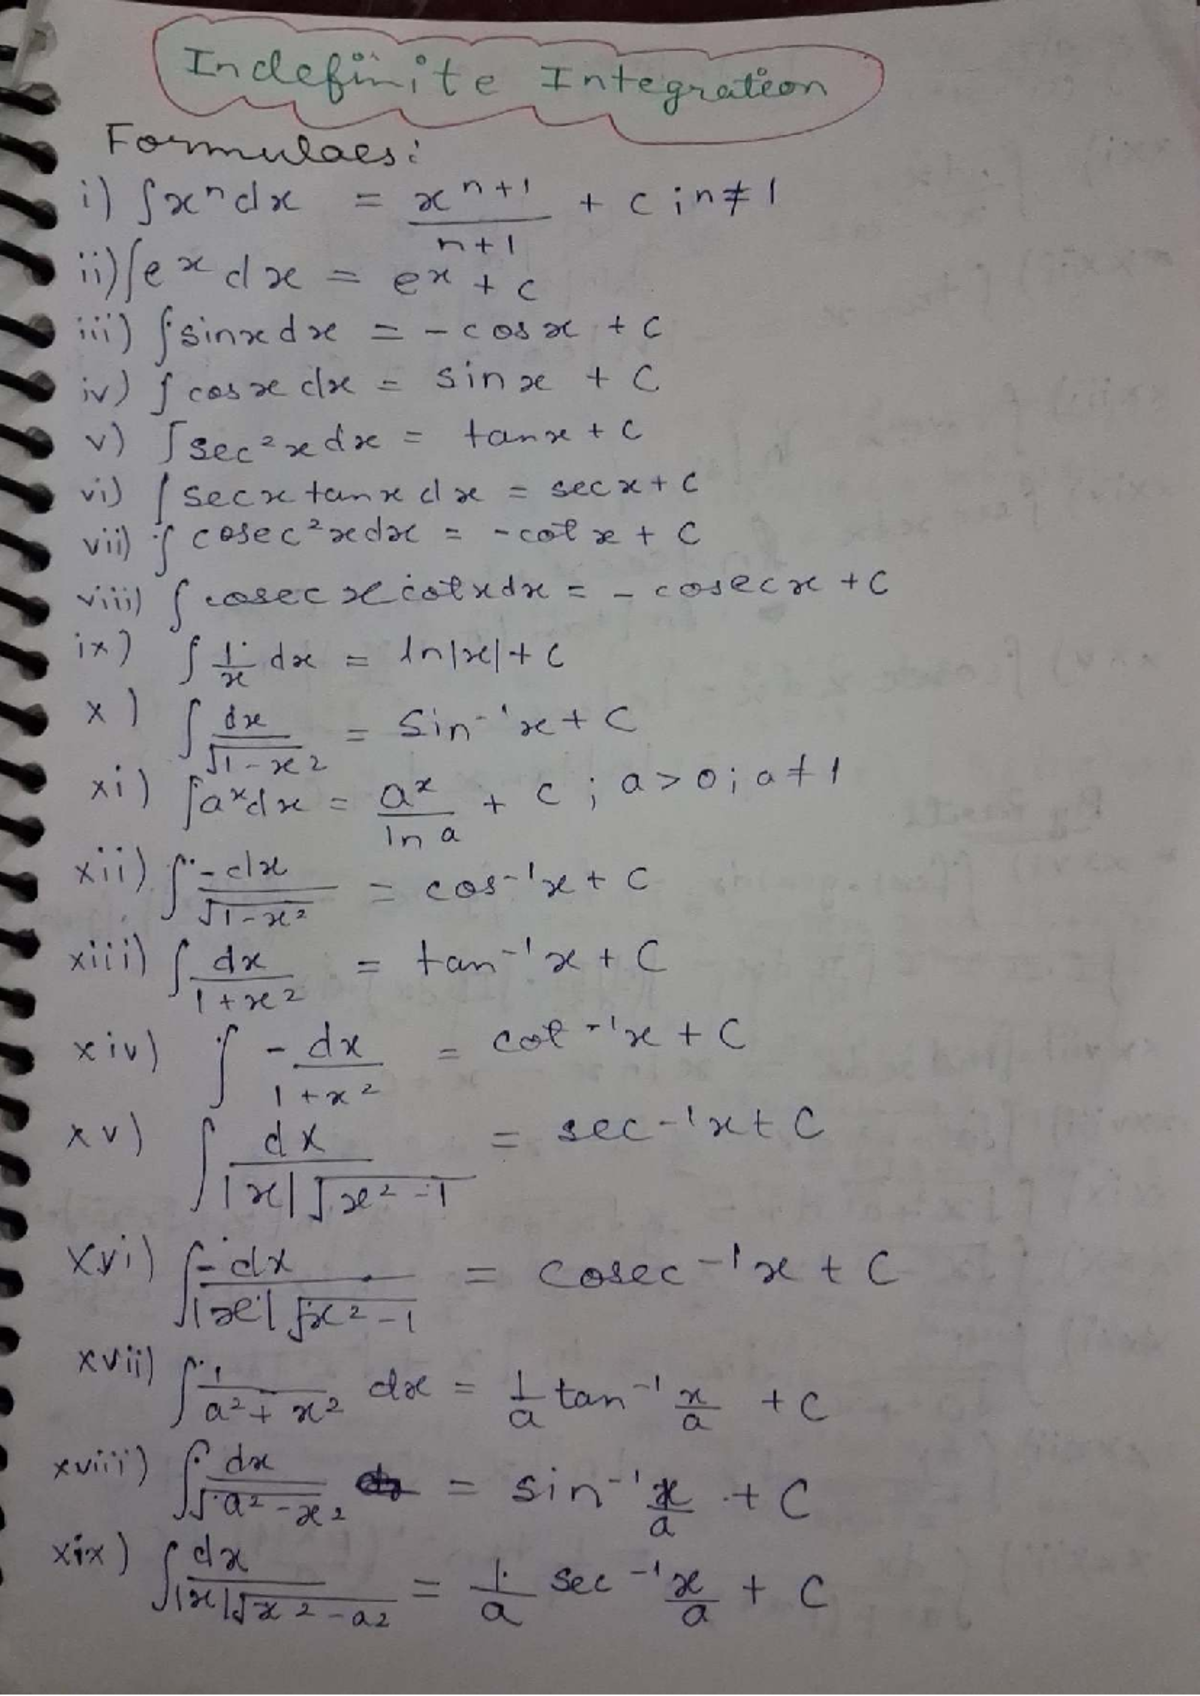 Indefinite Integration
Formulaes:
i) ∫xⁿdx = xⁿ⁺¹/n+1 + c ; n≠1
ii) ∫eˣdx = eˣ + c
iii) ∫sinxdx = -cosx + C
iv) ∫cosxdx = sinx + C
v) ∫sec²xdx = tanx + C
vi) ∫secxtanxdx = secx + C
vii) ∫cosec²xdx = -cotx + C
viii) ∫cosecxcotxdx = -cosecx + C
ix) ∫1/x dx = ln|x| + C
x) ∫dx/√1-x² = Sin⁻¹x + C
xi) ∫aˣdx = aˣ/ln a + C ; a>0 ; a≠1
xii) ∫-dx/√1-x² = cos⁻¹x + C
xiii) ∫dx/1+x² = tan⁻¹x + C
xiv) ∫-dx/1+x² = cot⁻¹x + C
xv) ∫dx/|x|√x²-1 = sec⁻¹x + C
xvi) ∫-dx/|x|√x²-1 = cosec⁻¹x + C
xvii) ∫1/a²+x² dx = 1/a tan⁻¹ x/a + C
xviii) ∫dx/√a²-x² = sin⁻¹ x/a + C
xix) ∫dx/|x|√x²-a² = 1/a sec⁻¹ x/a + C